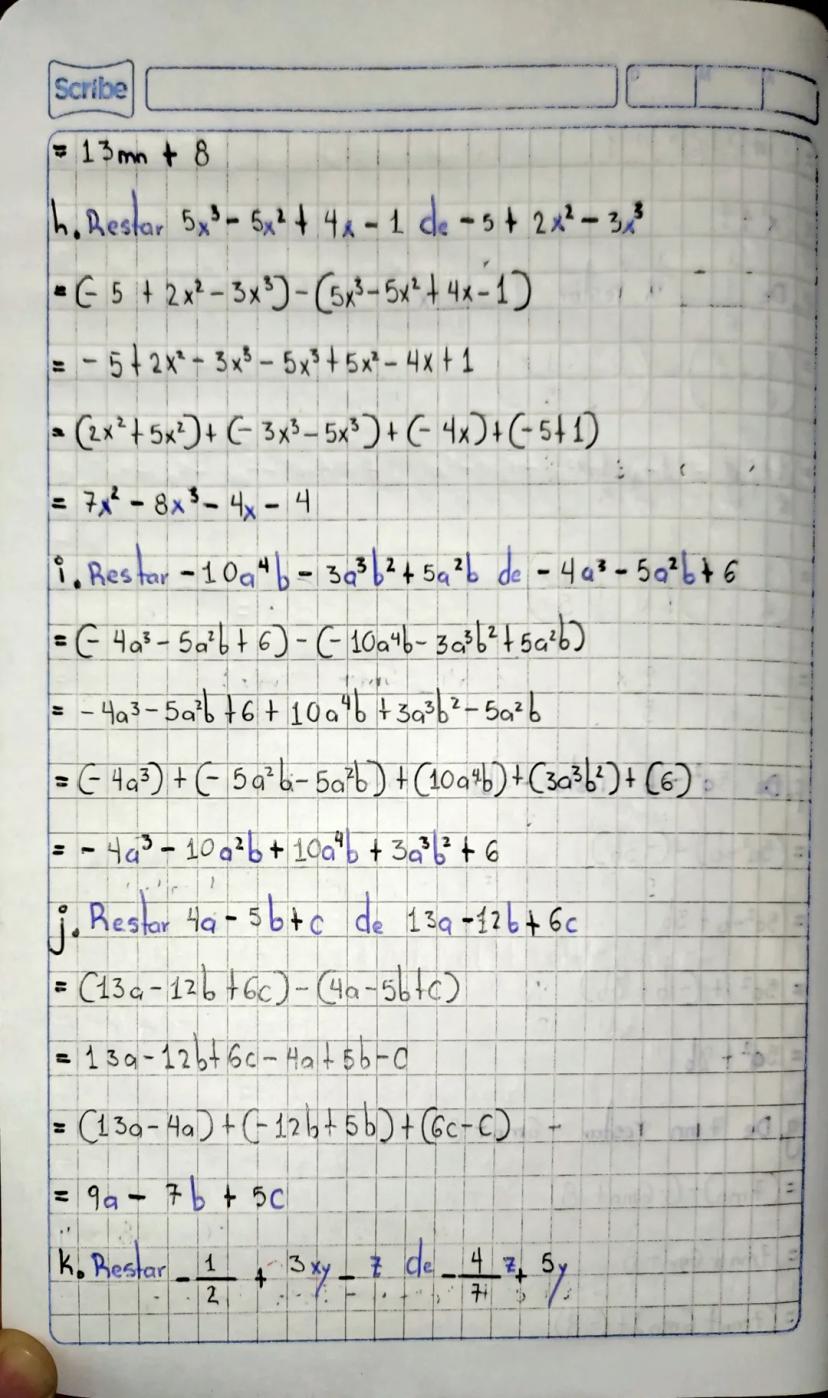 Scribe
= 13mn + 8
h. Restar 5x³ - 5x² + 4x - 1 de -5 + 2x² - 3x³
= (- 5 + 2x² - 3x³) - (5x³ - 5x² + 4x - 1)
= - 5 + 2x² - 3x³ - 5x³ + 5x² - 4x + 1
= (2x² + 5x²) + (- 3x³ - 5x³) + (- 4x) + (- 5 + 1)
= 7x² - 8x³ - 4x - 4
i. Restar - 10a⁴b - 3a³b² + 5a²b de - 4a³ - 5a²b + 6
= (- 4a³ - 5a²b + 6) - (- 10a⁴b - 3a³b² + 5a²b)
= - 4a³ - 5a²b + 6 + 10a⁴b + 3a³b² - 5a²b
= (- 4a³) + (- 5a²b - 5a²b) + (10a⁴b) + (3a³b²) + (6)
= - 4a³ - 10a²b + 10a⁴b + 3a³b² + 6
j. Restar 4a - 5b + c de 13a - 12b + 6c
= (13a - 12b + 6c) - (4a - 5b + c)
= 13a - 12b + 6c - 4a + 5b - c
= (13a - 4a) + (- 12b + 5b) + (6c - c)
= 9a - 7b + 5c
k. Restar - 1/2 + 3xy - z de - 4/7 z + 5y